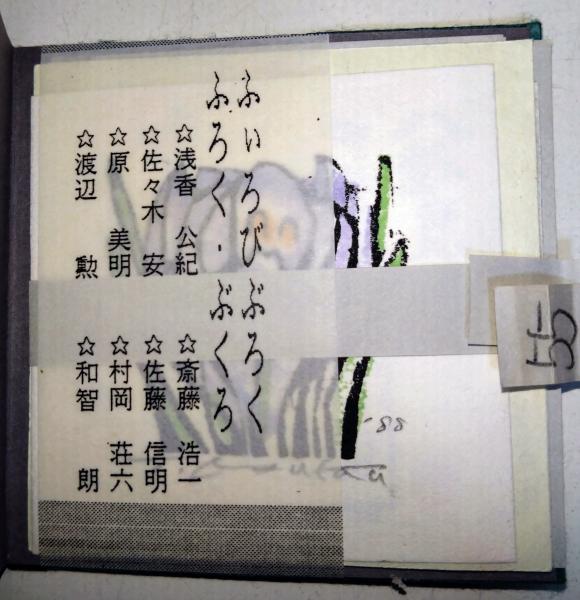 ふぃろびぶろく
ふろく・ぶくろ
☆浅香 公紀 ☆斎藤 浩一
☆佐々木 安 ☆佐藤 信明
☆原 美明 ☆村岡 荘六
☆渡辺 勲 ☆和智 朗
'88